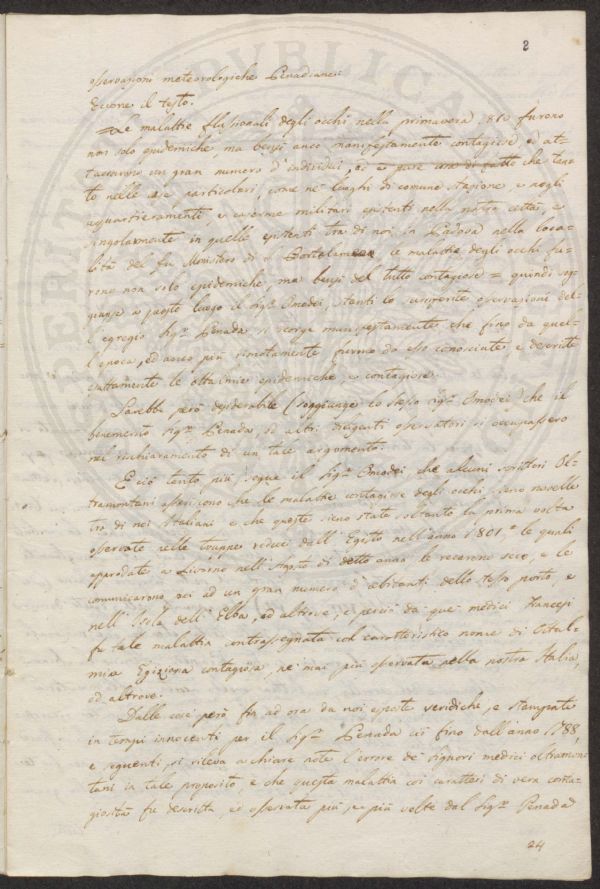 2
osservazioni meteorologiche Penadiane:
Eccone il testo.
Le malattie flussionali degli occhi nella primavera 1810 furono
non solo epidemiche, ma bensì anco manifestamente contagiose ed at-
taccarono un gran numero d'individui, ed è pure di fatto che tan-
to nelle case particolari, come ne' luoghi di comune stazione e negli
acquartieramenti, e caserme militari esistenti nella nostra città, e
singolarmente in quelle esistenti tra di noi in Padova nella loca-
lità del fu Monistero di S. Bortolameo, le malattie degli occhi fu-
rono non solo epidemiche, ma bensì del tutto contagiose = quindi sog-
giunge a questo luogo il Sigr. Omodei, stanti le susseguite osservazioni del-
l'egregio Sigr. Penada si scorge manifestamente che fino da quel-
l'epoca, ed anco più rimotamente furono da esso conosciute e descritte
esattamente le oftalmie epidemiche, e contagiose.
Sarebbe però desiderabile (soggiunge lo stesso Sigr. Omodei) che il
benemerito Sigr. Penada, ed altri diligenti osservatori si occupassero
nel rischiaramento di un tale argomento.
E ciò tanto più segue il Sigr. Omodei che alcuni scrittori Ol-
tramontani asseriscono che le malattie contagiose degli occhi sieno novelle
tra di noi Italiani e che queste sieno state soltanto la prima volta
osservate nelle truppe reduci dall'Egitto nell'anno 1801, le quali
approdate a Livorno nell'Agosto di detto anno le recarono seco, e le
comunicarono poi ad un gran numero d'abitanti dello stesso porto, e
nell'Isola dell'Elba, ed altrove, e perciò da que' medici Francesi
fu tale malattia contrassegnata col caratteristico nome di Ottal-
mia Egiziana contagiosa, nè mai più osservata nella nostra Italia,
ed altrove.
Dalle cose però fin ad ora da noi esposte veridiche, e stampate
in tempi innocenti per il Sigr. Penada ciò fino dall'anno 1788,
e seguenti si rileva a chiare note l'errore de' signori medici oltramon-
tani in tale proposito, e che questa malattia coi caratteri di vera conta-
giosità fu descritta, ed osservata più, e più volte dal Sigr. Penada
24